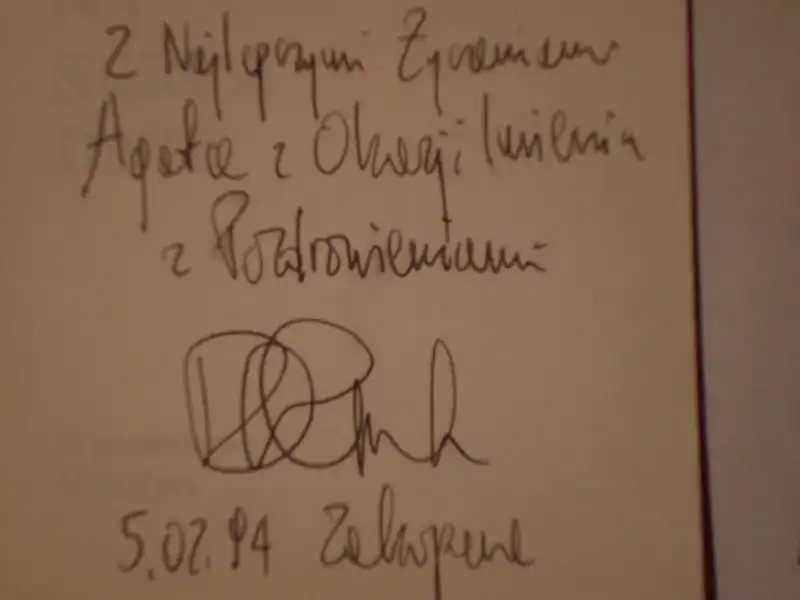 z Najlepszymi Życzeniami
Agatce z Okazji Imienin
z Pozdrowieniami
5.02.94 Zakopane